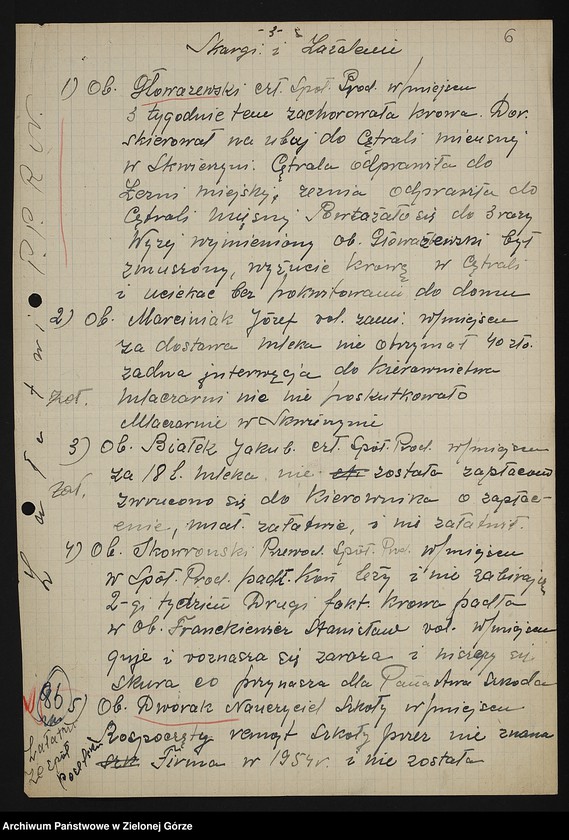 -3-
6
Skargi i Zażalenie
1) Ob. Głowazewski czł. Społ. Prod. w/miejscu
3 tygodnie tem zachorowała krowa. Dor.
skierował na uboj do Cętrali miensnej
w Skwierzyni. Cętrala odprawiła do
Rzerni miejskej, rzernia odprawiła do
Cętrali Mięsnej Powtażało się do 3 razy
Wyzej wymieniony ob. Głowazewski był
zmuszony, wyżucic krowę w Cętrali
i uciekać bez pokwitowani do domu
2) Ob. Marciniak Józef rol. zami. w/miejscu
za dostawa mleka nie otrzymał 40 zło.
żadna interwęcja do kierownictwa
zał. mlaczarni nic nie poskutkowało
Mlaczarnie w Skwirzynie
3) Ob. Białek Jakub. czł. Społ. Prod. w/miejscu
zał. za 18 l. mleka nie została zapłacono
zwrucono się do kierownika o zapłac-
enie, miał załatwie, i ni załatwił.
4) Ob. Skowronski Przewod. Spół. Prod. w/miejscu
w Spół. Prod. padł. Koń leży i nie zabierają
2-gi tydzień Drugi fakt. krowa padła
w Ob. Franckiewicz Stanisław rol. w/miejscu
guje i roznasza się zaraza i niszczy się
skura co przynasza dla Państwa szkoda
5) Ob. Dworak Nauczyciel Szkoły w/miejscu
Rozpoczęty remąt szkoły przez nie znana
Firma w 1954 r. i nie została
P.P.R.N.
86
Załatwi
ze społ